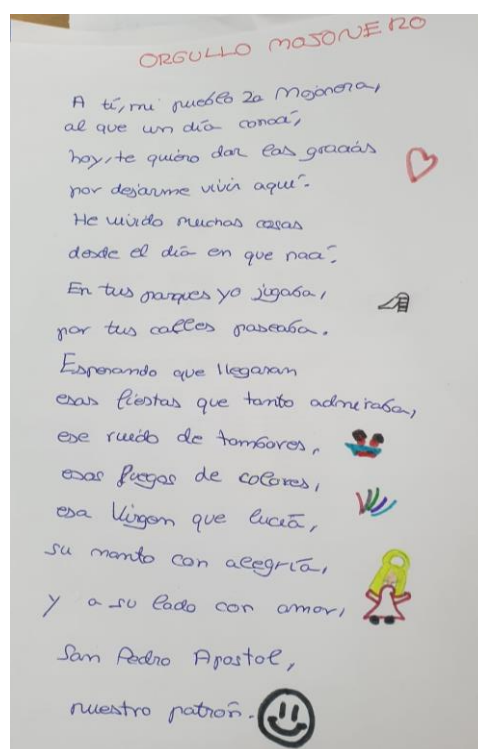 ORGULLO MOJONERO
A ti, mi pueblo La Mojonera,
al que un día conocí,
hoy, te quiero dar las gracias
por dejarme vivir aquí.
He vivido muchas cosas
desde el día en que nací.
En tus parques yo jugaba,
por tus calles paseaba.
Esperando que llegaran
esas fiestas que tanto admiraba,
ese ruido de tambores,
esos fuegos de colores,
esa Virgen que lucía,
su manto con alegría,
y a su lado con amor,
San Pedro Apostol,
nuestro patrón.